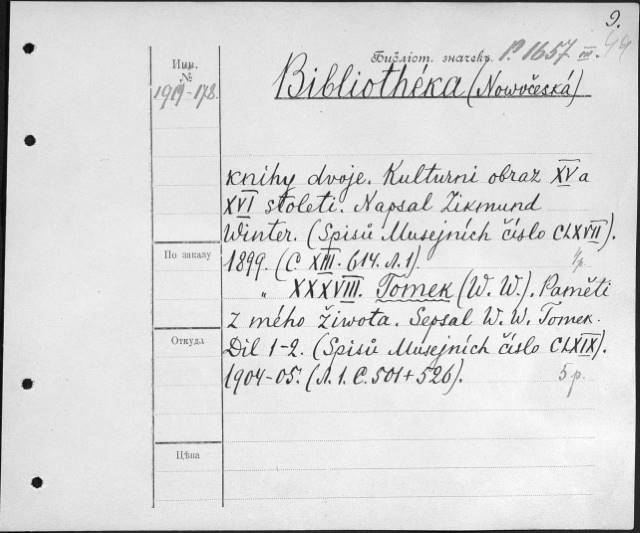 9.
Инв. №
1919-178.
Библіот. значекъ P. 1657 III. 44
Bibliothéka (Nowočeská)
knihy dvoje. Kulturni obraz XV a
XVI stoleti. Napsal Zikmund
Winter. (Spisů Musejních číslo CLXVII).
1899. (C. XIII. 614. Л. 1).
По заказу
" XXXVIII. Tomek (W. W.). Paměti
z mého žiwota. Sepsal W. W. Tomek.
Откуда
Dil 1-2. (Spisů Musejních číslo CLXIX).
1904-05. (Л. 1. C. 501 + 526). 5 р.
Цѣна